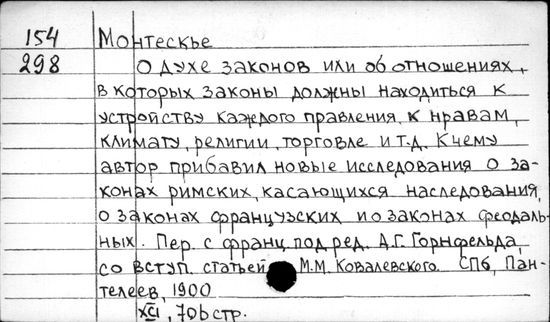 154 Монтескье
298 О духе законов или об отношениях,
в которых законы должны находиться к
устройству каждого правления, к нравам,
климату, религии, торговле и т.д. К чему
автор прибавил новые исследования о за-
конах римских, касающихся наследования,
о законах французских и о законах феодаль-
ных. Пер. с франц. под ред. А.Г. Горнфельда,
со вступ. статьей М.М. Ковалевского. СПб, Пан-
телеев, 1900
, 706 стр.